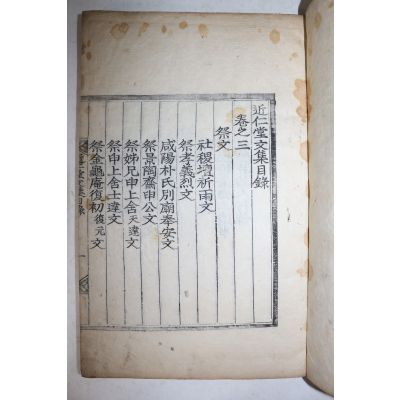 近仁堂文集目錄
卷之三
祭文
社稷壇祈雨文
祭孝義烈文
咸陽朴氏別廟奉安文
祭景陶齋申公文
祭姊兄申上舍天達文
祭申上舍士達文
祭金龜庵復初復元文